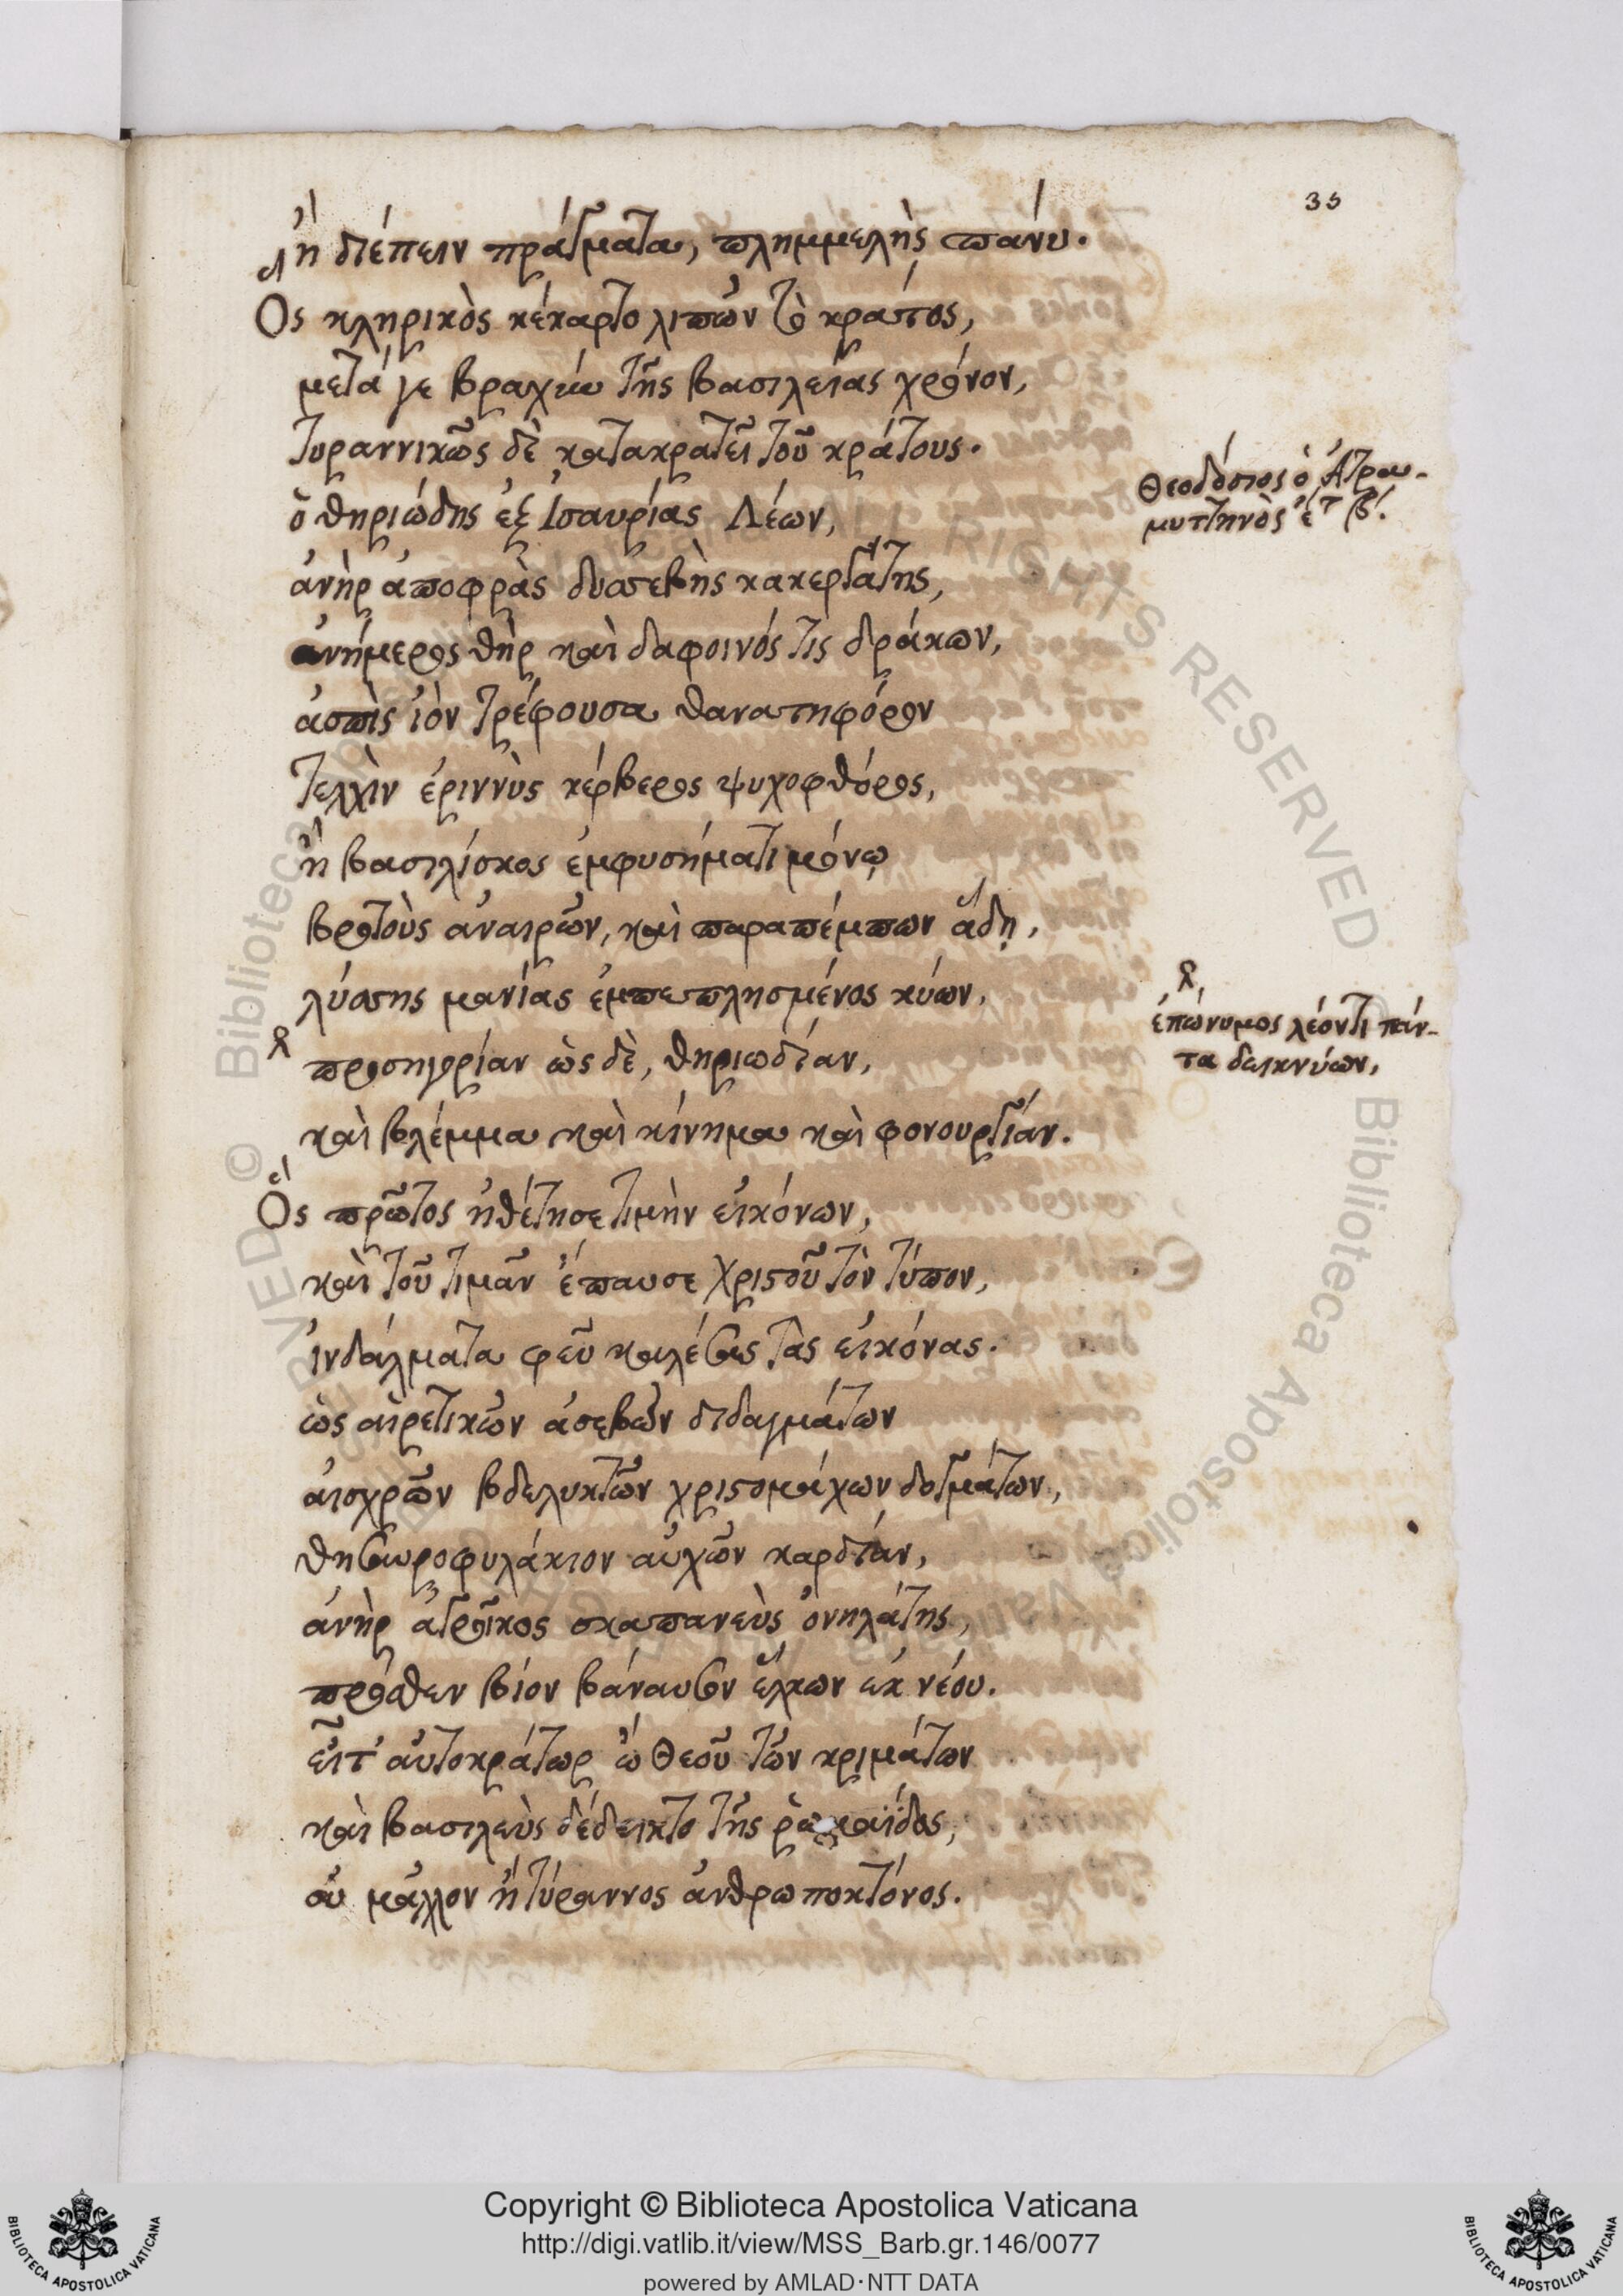 35
ἢ διέπειν πράγματα, πλημμελὴς πάνυ.
Ὃς κληρικὸς κέκαρτο λιπὼν τὸ κράτος,
μετά γε βραχὺν τῆς βασιλείας χρόνον,
τυραννικῶς δὲ κατακρατεῖ τοῦ κράτους.
Θεοδόσιος ὁ Ἀτρα-
μυττηνὸς ἔτ β΄.
ὁ θηριώδης ἐξ Ἰσαυρίας Λέων,
ἀνὴρ ἀποφρὰς δυσσεβὴς κακεργάτης,
ἀνήμερος θὴρ καὶ δαφοινός τις δράκων,
ἀσπὶς ἰὸν τρέφουσα θανατηφόρον
τελχὶν ἐριννὺς κέρβερος ψυχοφθόρος,
ἢ βασιλίσκος ἐμφυσήματι μόνῳ
βροτοὺς ἀναιρῶν, καὶ παραπέμπων ἅδῃ,
λύσσης μανίας ἐμπεπλησμένος κύων,
ἐπώνυμος λέοντι πάν-
τα δεικνύων,
προσηγορίαν ὡς δὲ, θηριωδίαν,
καὶ βλέμμα καὶ κίνημα καὶ φονουργίαν.
Ὃς πρῶτος ἠθέτησε τιμὴν εἰκόνων,
καὶ τοῦ τιμᾶν ἔπαυσε Χριστοῦ τὸν τύπον,
ἰνδάλματα φεῦ καλέσας τὰς εἰκόνας.
ὡς αἱρετικῶν ἀσεβῶν διδαγμάτων
αἰσχρῶν βδελυκτῶν χριστομάχων δογμάτων,
θησωροφυλάκιον αὐχῶν καρδίαν,
ἀνὴρ ἀγροῖκος σκαπανεὺς ὀνηλάτης,
πρόσθεν βίον βάναυσον ἕλκων ἐκ νέου.
εἶτ' αὐτοκράτωρ ὢ Θεοῦ τῶν κριμάτων
καὶ βασιλεὺς δέδεικτο τῆς ῥωμαΐδος,
οὐ μᾶλλον ἢ τύραννος ἀνθρωποκτόνος.
Copyright © Biblioteca Apostolica Vaticana
http://digi.vatlib.it/view/MSS_Barb.gr.146/0077
powered by AMLAD·NTT DATA